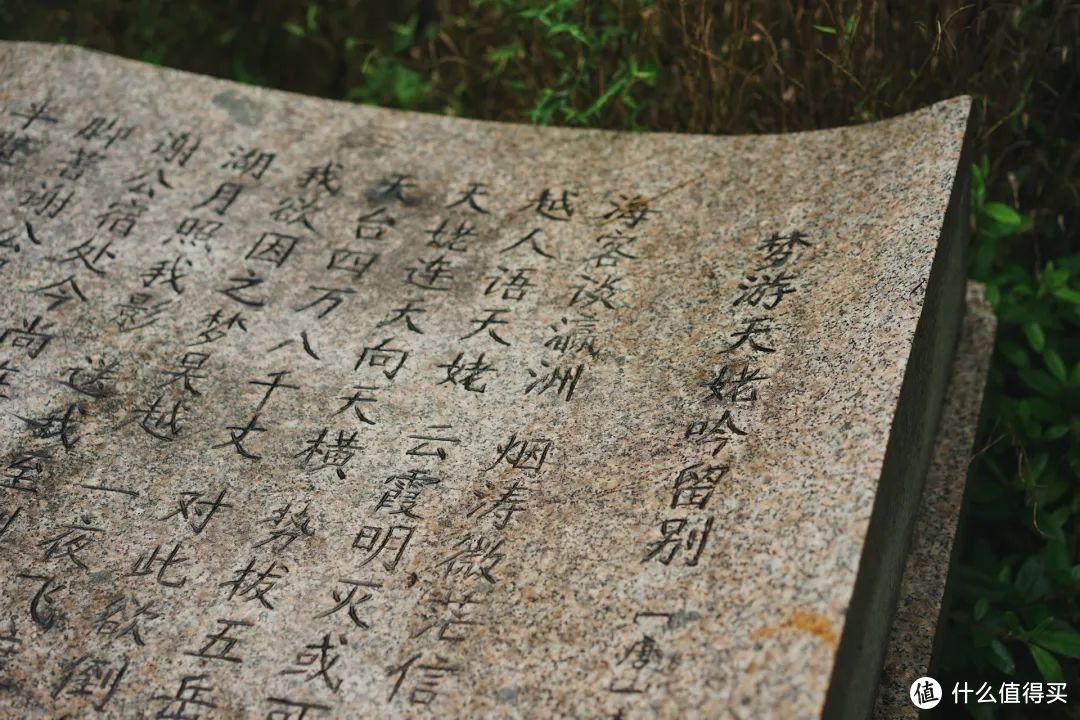 梦游天姥吟留别 [唐]
海客谈瀛洲 烟涛微茫信
越人语天姥 云霞明灭或可
天姥连天向天横 势拔五岳
天台四万八千丈 对此欲倒
我欲因之梦吴越 一夜飞
湖月照我影 送我至
谢公宿处今尚在
脚著谢公
半
值 什么值得买